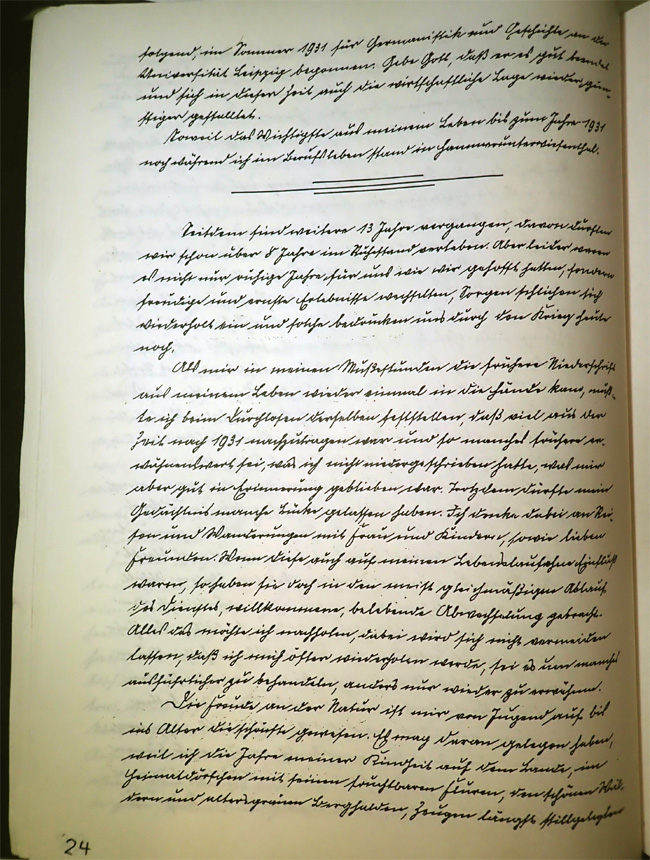 folgend, im Sommer 1931 für Germanistik und Geschichte an der
Universität Leipzig begonnen. Gebe Gott, daß er es gut beendet
und sich in dieser Zeit auch die wirtschaftliche Lage wieder gün-
stiger gestaltet.
Soweit das Wichtigste aus meinem Leben bis zum Jahre 1931
noch während ich im Berufsleben stand in Hammerunterwiesenthal.
Seitdem sind weitere 13 Jahre vergangen, davon durften
wir schon über 8 Jahre im Ruhestand verleben. Aber leider waren
es nicht nur ruhige Jahre für uns wie wir gehofft hatten, sondern
freudige und ernste Erlebnisse wechselten, Sorgen schlichen sich
wiederholt ein und solche bedrücken uns durch den Krieg heute
noch.
Als mir in meinen Mußestunden die frühere Niederschrift
aus meinem Leben wieder einmal in die Hände kam, muß-
te ich beim Durchlesen derselben feststellen, daß viel aus der
Zeit nach 1931 nachzutragen war und so manches frühere er-
wähnenswert sei, was ich nicht niedergeschrieben hatte, was mir
aber gut in Erinnerung geblieben war. Trotzdem dürfte mein
Gedächtnis manche Lücke gelassen haben. Ich denke dabei an Rei-
sen und Wanderungen mit Frau und Kindern, sowie lieben
Freunden. Wenn diese auch auf meinen Lebenslauf ohne Einfluß
waren, so haben sie doch in den meist gleichmäßigen Ablauf
des Dienstes, willkommene, belebende Abwechselung gebracht.
Alles das möchte ich nachholen, dabei wird sich nicht vermeiden
lassen, daß ich mich öfter wiederholen werde, sei es um manches
ausführlicher zu behandeln, anders nur wieder zu erwähnen.
Die Freude an der Natur ist mir von Jugend auf bis
ins Alter die schönste gewesen. Es mag daran gelegen haben,
weil ich die Jahre meiner Kindheit auf dem Lande, im
Heimatdörfchen mit seinen fruchtbaren Fluren, den schönen Wäl-
dern und altersgrauen Berghalden, Zeugen längst stillgelegten
24